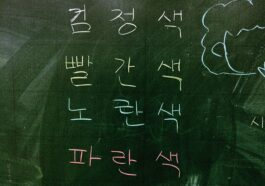 검정색
빨간색
노란색
시
파란색